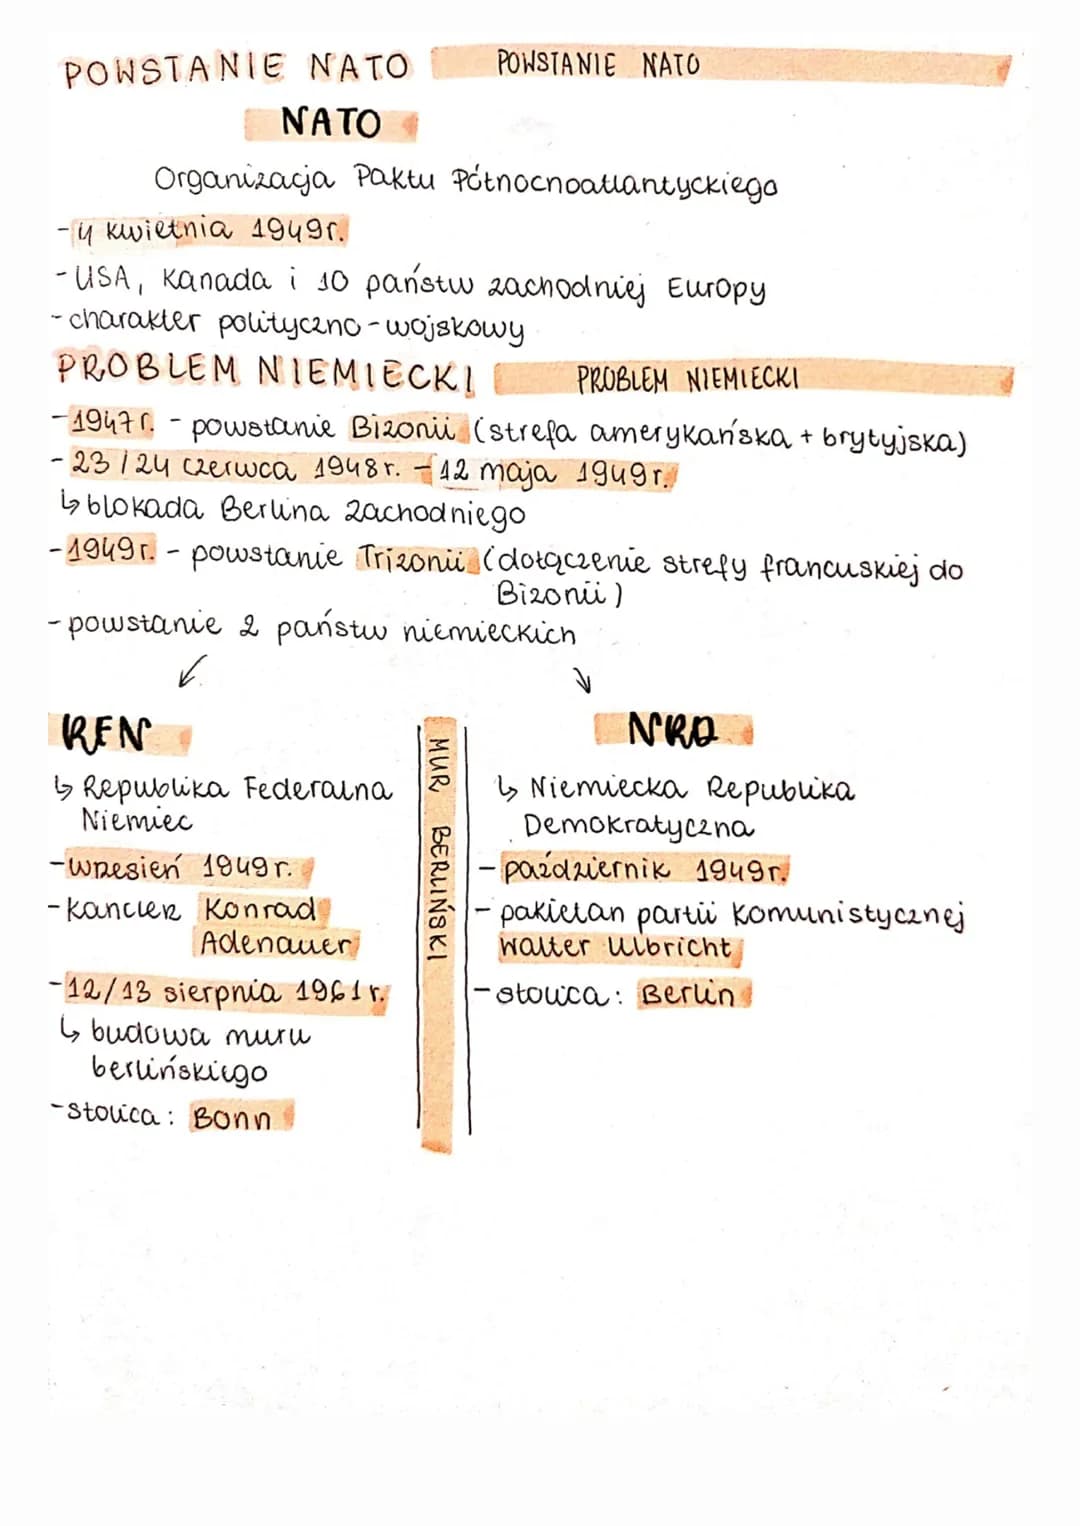 POWSTANIE NATO POWSTANIE NATO
NATO
Organizacja Paktu Północnoatlantyckiego
-4 kwietnia 1949r.
-USA, Kanada i 10 państw zachodniej Europy
-charakter polityczno-wojskowy
PROBLEM NIEMIECKI PROBLEM NIEMIECKI
-1947r. - powstanie Bizonii (strefa amerykańska + brytyjska)
-23/24 czerwca 1948r. - 12 maja 1949r.
↳ blokada Berlina Zachodniego
-1949r. - powstanie Trizonii (dołączenie strefy francuskiej do
Bizonii)
-powstanie 2 państw niemieckich
RFN
↳ Republika Federalna
Niemiec
-wrzesień 1949r.
-kanclerz Konrad
Adenauer
-12/13 sierpnia 1961r.
↳ budowa muru
berlińskiego
-stolica: Bonn
MUR BERLIŃSKI
NRD
↳ Niemiecka Republika
Demokratyczna
-październik 1949r.
-pakietan partii komunistycznej
Walter Ulbricht
-stolica: Berlin